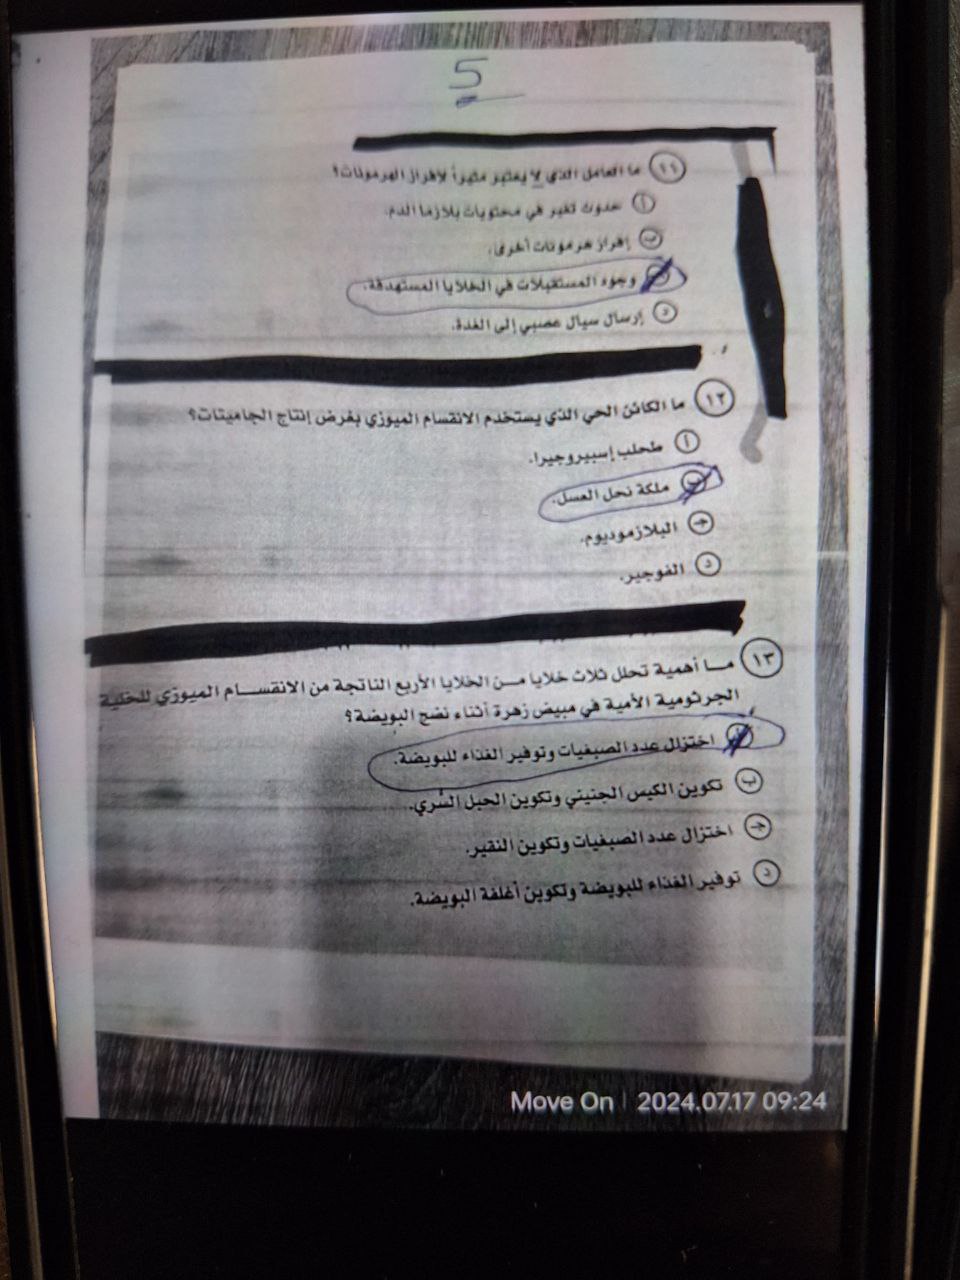 5
١١ ما العامل الذي لا يعتبر مثيراً لإفراز الهرمونات؟
أ حدوث تغير في محتويات بلازما الدم.
ب إفراز هرمونات أخرى.
وجود المستقبلات في الخلايا المستهدفة.
د إرسال سيال عصبي إلى الغدة.
١٢ ما الكائن الحي الذي يستخدم الانقسام الميوزي بغرض إنتاج الجاميتات؟
أ طحلب إسبيروجيرا.
ب ملكة نحل العسل.
ج البلازموديوم.
د الفوجير.
١٣ مـا أهمية تحلل ثلاث خلايا مـن الخلايا الأربع الناتجة من الانقسـام الميوزي للخلية
الجرثومية الأمية في مبيض زهرة أثناء نضج البويضة؟
أ اختزال عدد الصبغيات وتوفير الغذاء للبويضة.
ب تكوين الكيس الجنيني وتكوين الحبل السُري.
ج اختزال عدد الصبغيات وتكوين النقير.
د توفير الغذاء للبويضة وتكوين أغلفة البويضة.
Move On | 2024.07.17 09:24